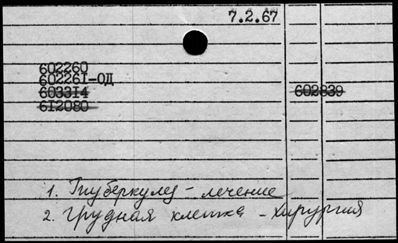 7.2.67
602260
602261-ОД
603314 602839
612080
1. Туберкулез - лечение
2. Грудная клетка - хирургия